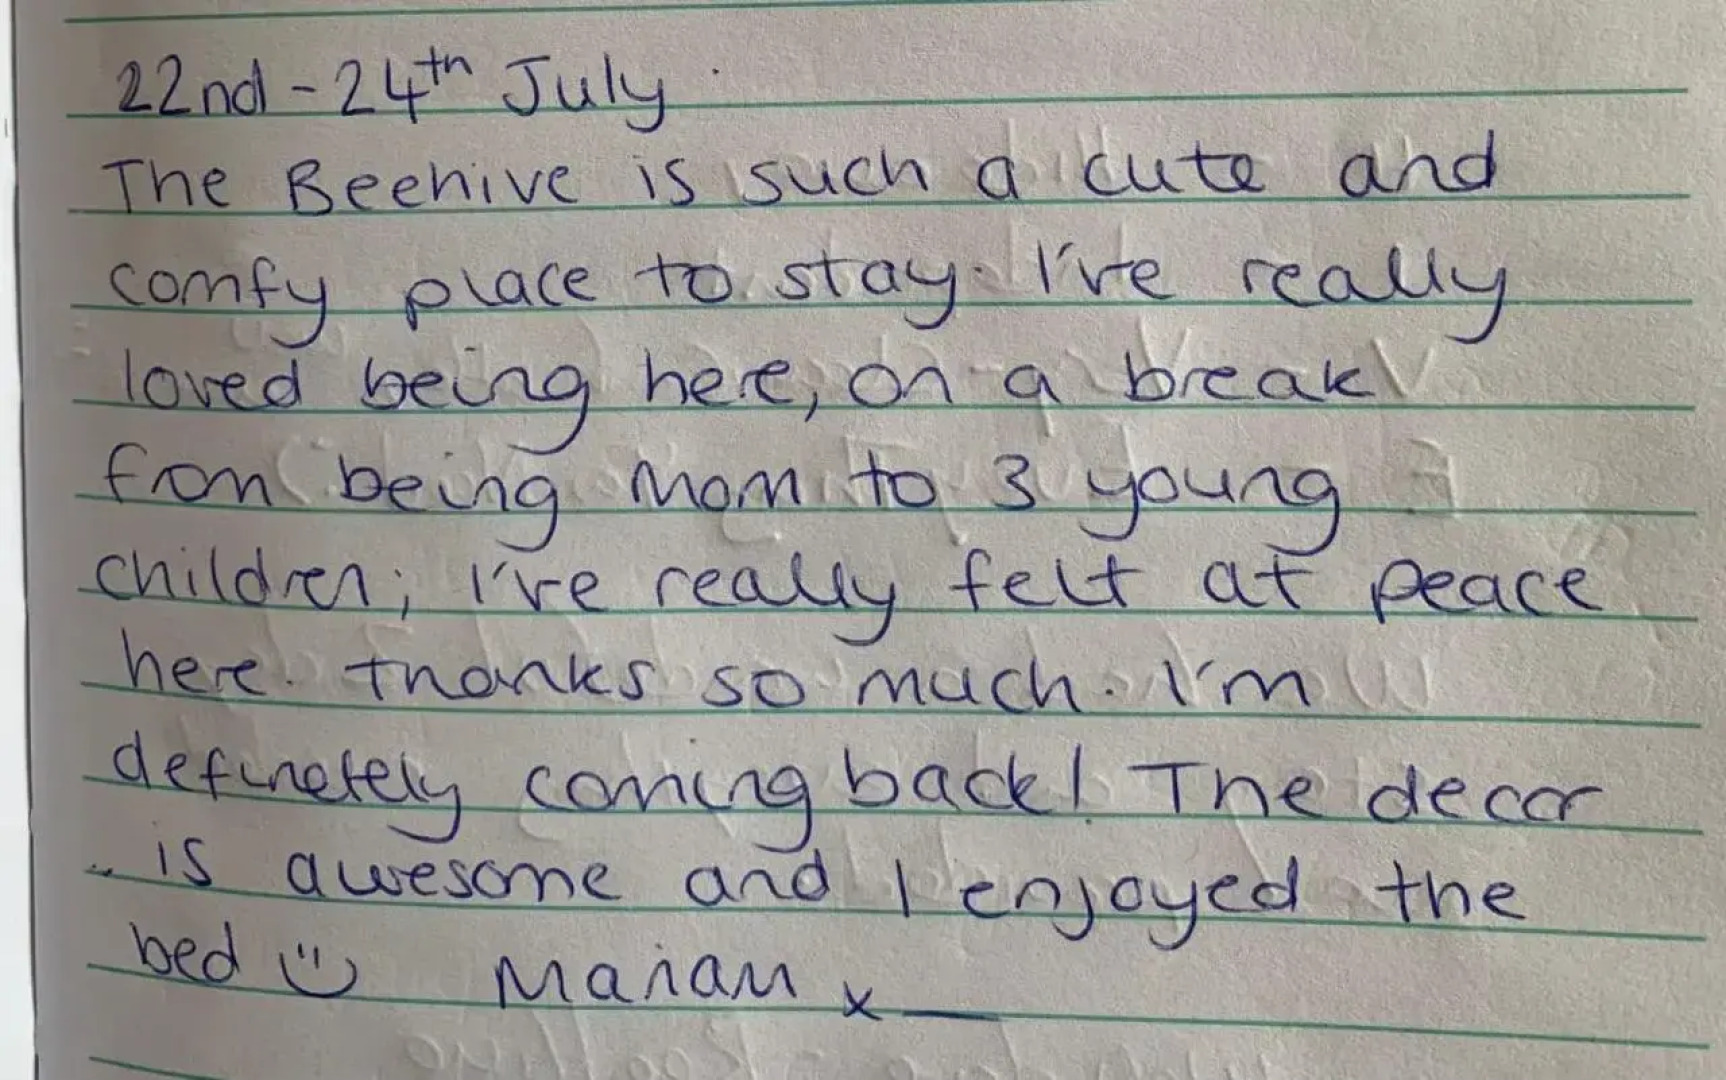 22nd - 24th July
The Beehive is such a cute and
comfy place to stay. I've really
loved being here, on a break
from being Mom to 3 young
children; I've really felt at peace
here. thanks so much. I'm
definetely coming back! The decor
is awesome and I enjoyed the
bed Mariam x